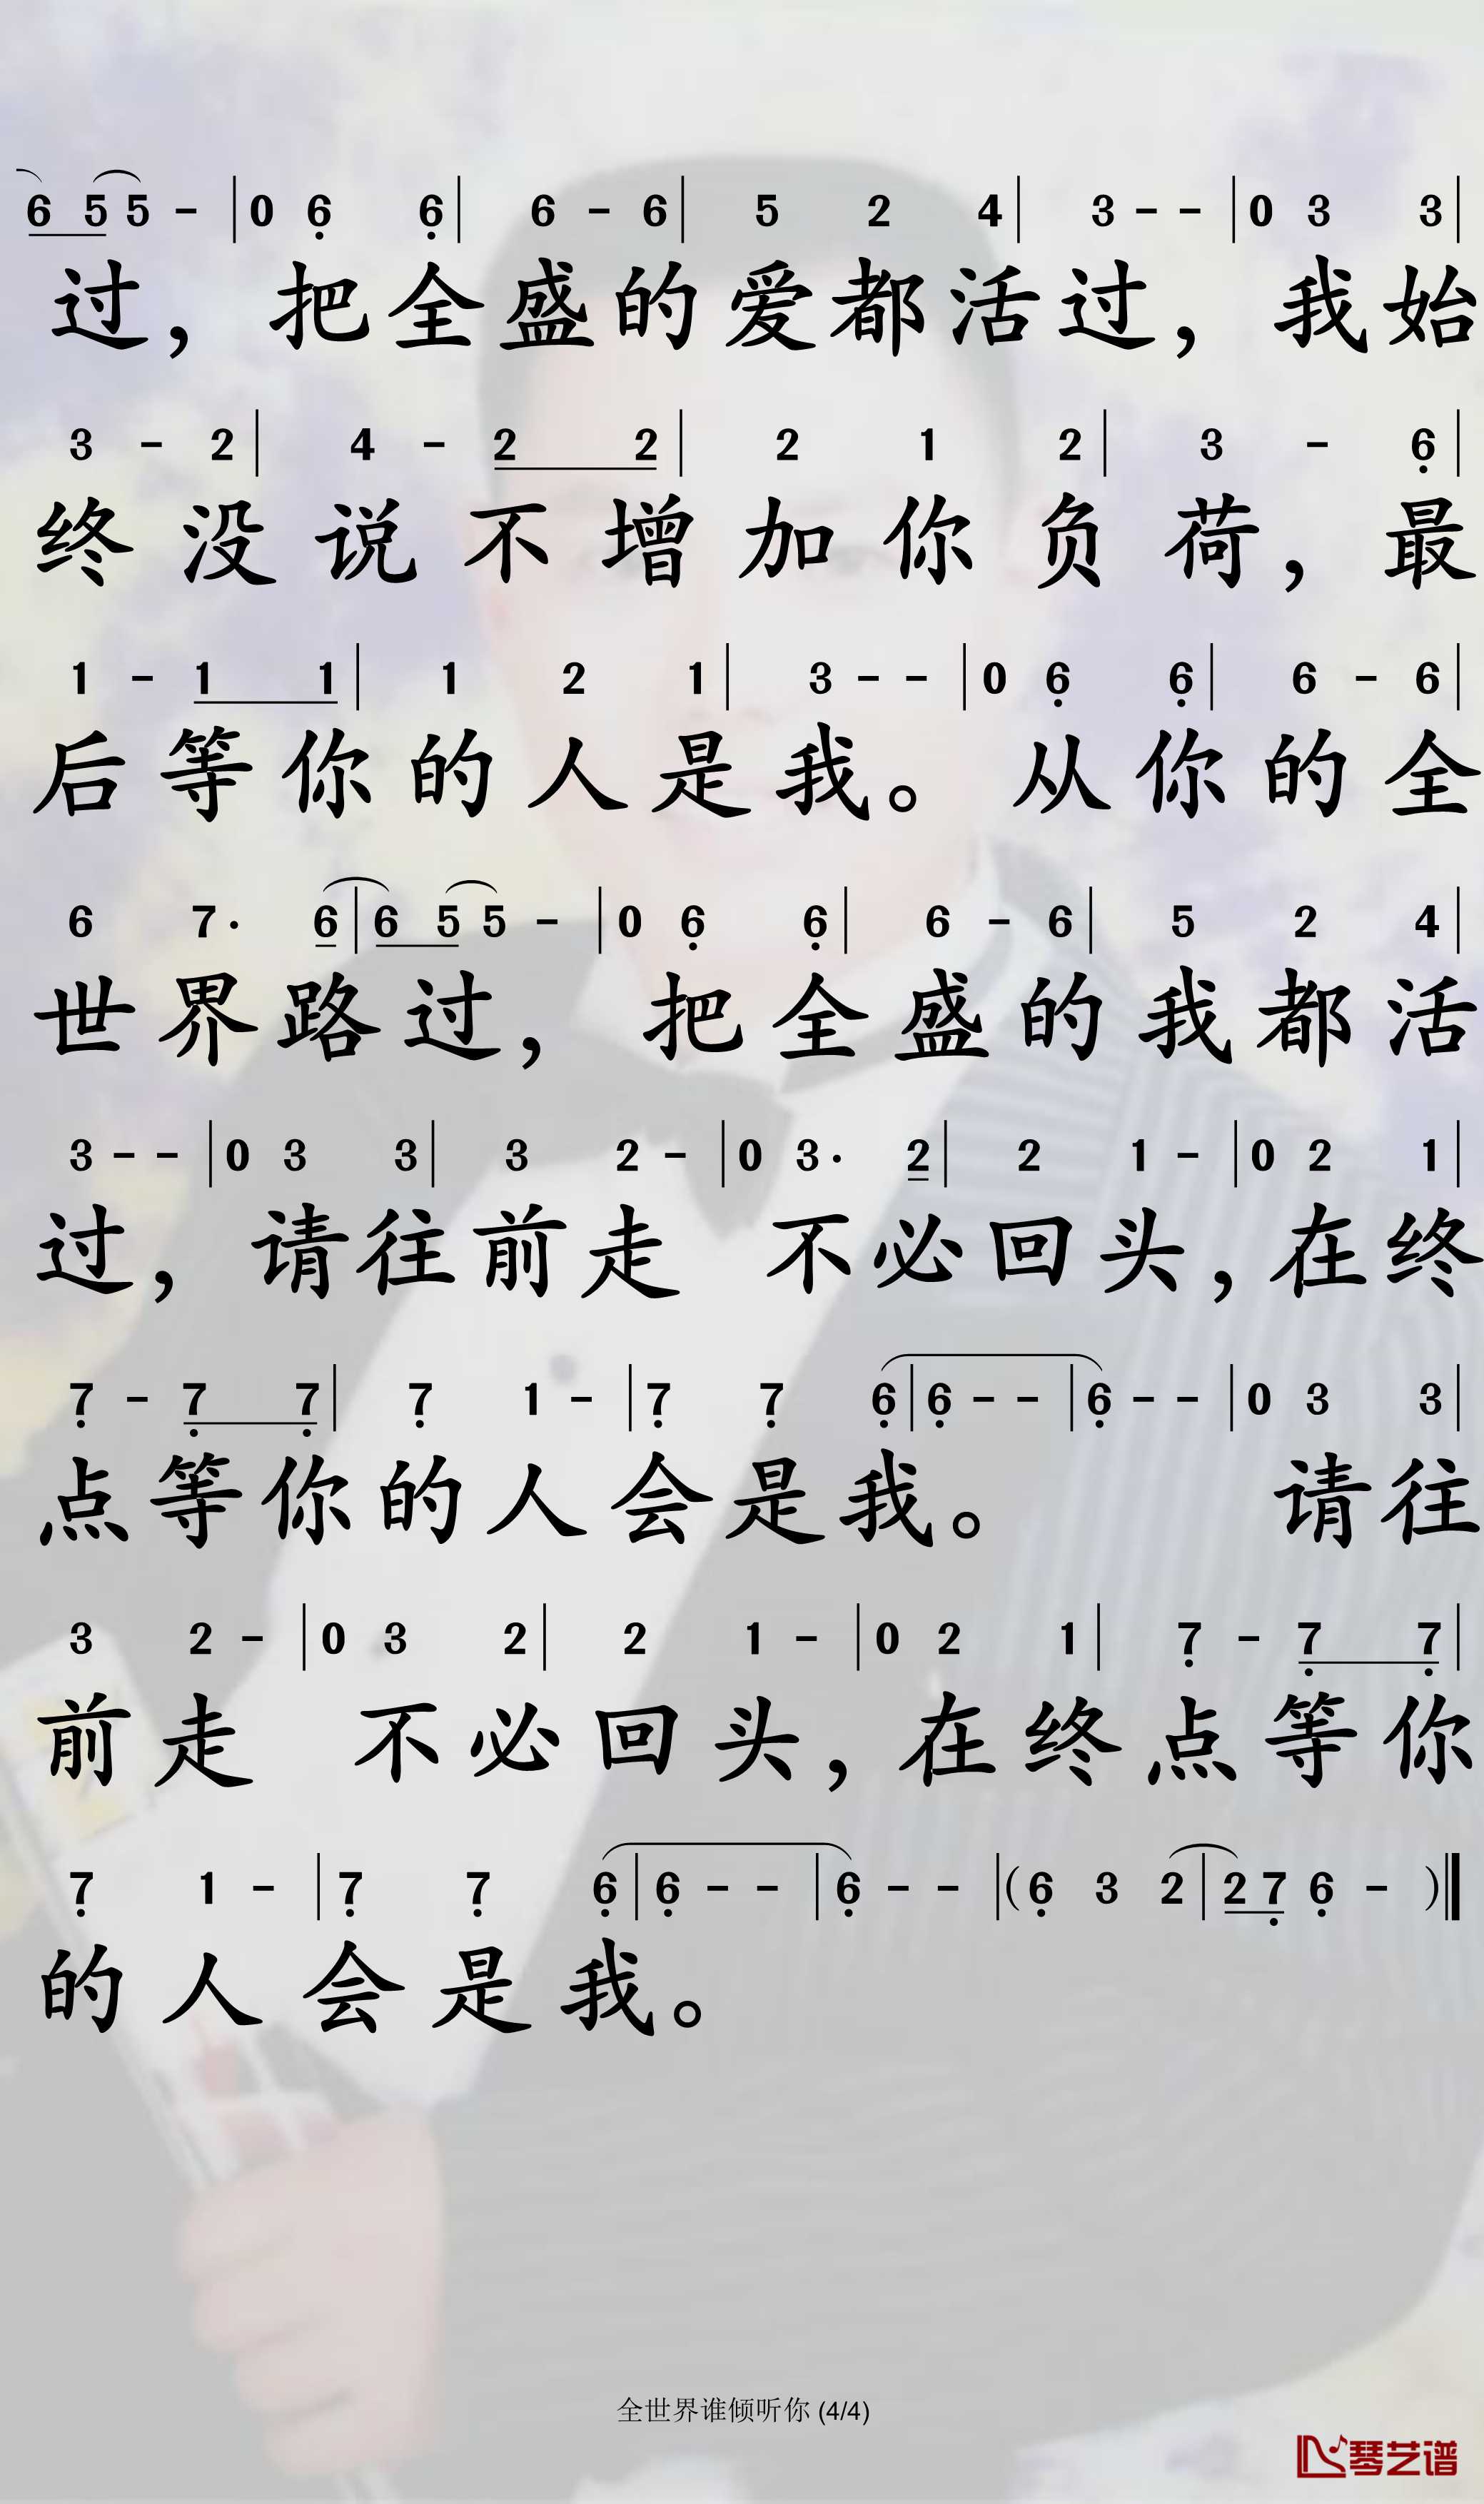 6 5 5 - | 0 6̣ 6̣ | 6 - 6 | 5 2 4 | 3 - - | 0 3 3 |
过，把全盛的爱都活过，我始
3 - 2 | 4 - 2 2 | 2 1 2 | 3 - 6̣ |
终没说不增加你负荷，最
1 - 1 1 | 1 2 1 | 3 - - | 0 6̣ 6̣ | 6 - 6 |
后等你的人是我。从你的全
6 7· 6 | 6 5 5 - | 0 6̣ 6̣ | 6 - 6 | 5 2 4 |
世界路过，把全盛的我都活
3 - - | 0 3 3 | 3 2 - | 0 3· 2 | 2 1 - | 0 2 1 |
过，请往前走 不必回头，在终
7̣ - 7̣ 7̣ | 7̣ 1 - | 7̣ 7̣ 6̣ | 6̣ - - | 6̣ - - | 0 3 3 |
点等你的人会是我。 请往
3 2 - | 0 3 2 | 2 1 - | 0 2 1 | 7̣ - 7̣ 7̣ |
前走 不必回头，在终点等你
7̣ 1 - | 7̣ 7̣ 6̣ | 6̣ - - | 6̣ - - | (6̣ 3 2 | 2 7̣ 6̣ - )‖
的人会是我。
全世界谁倾听你 (4/4)
琴艺谱